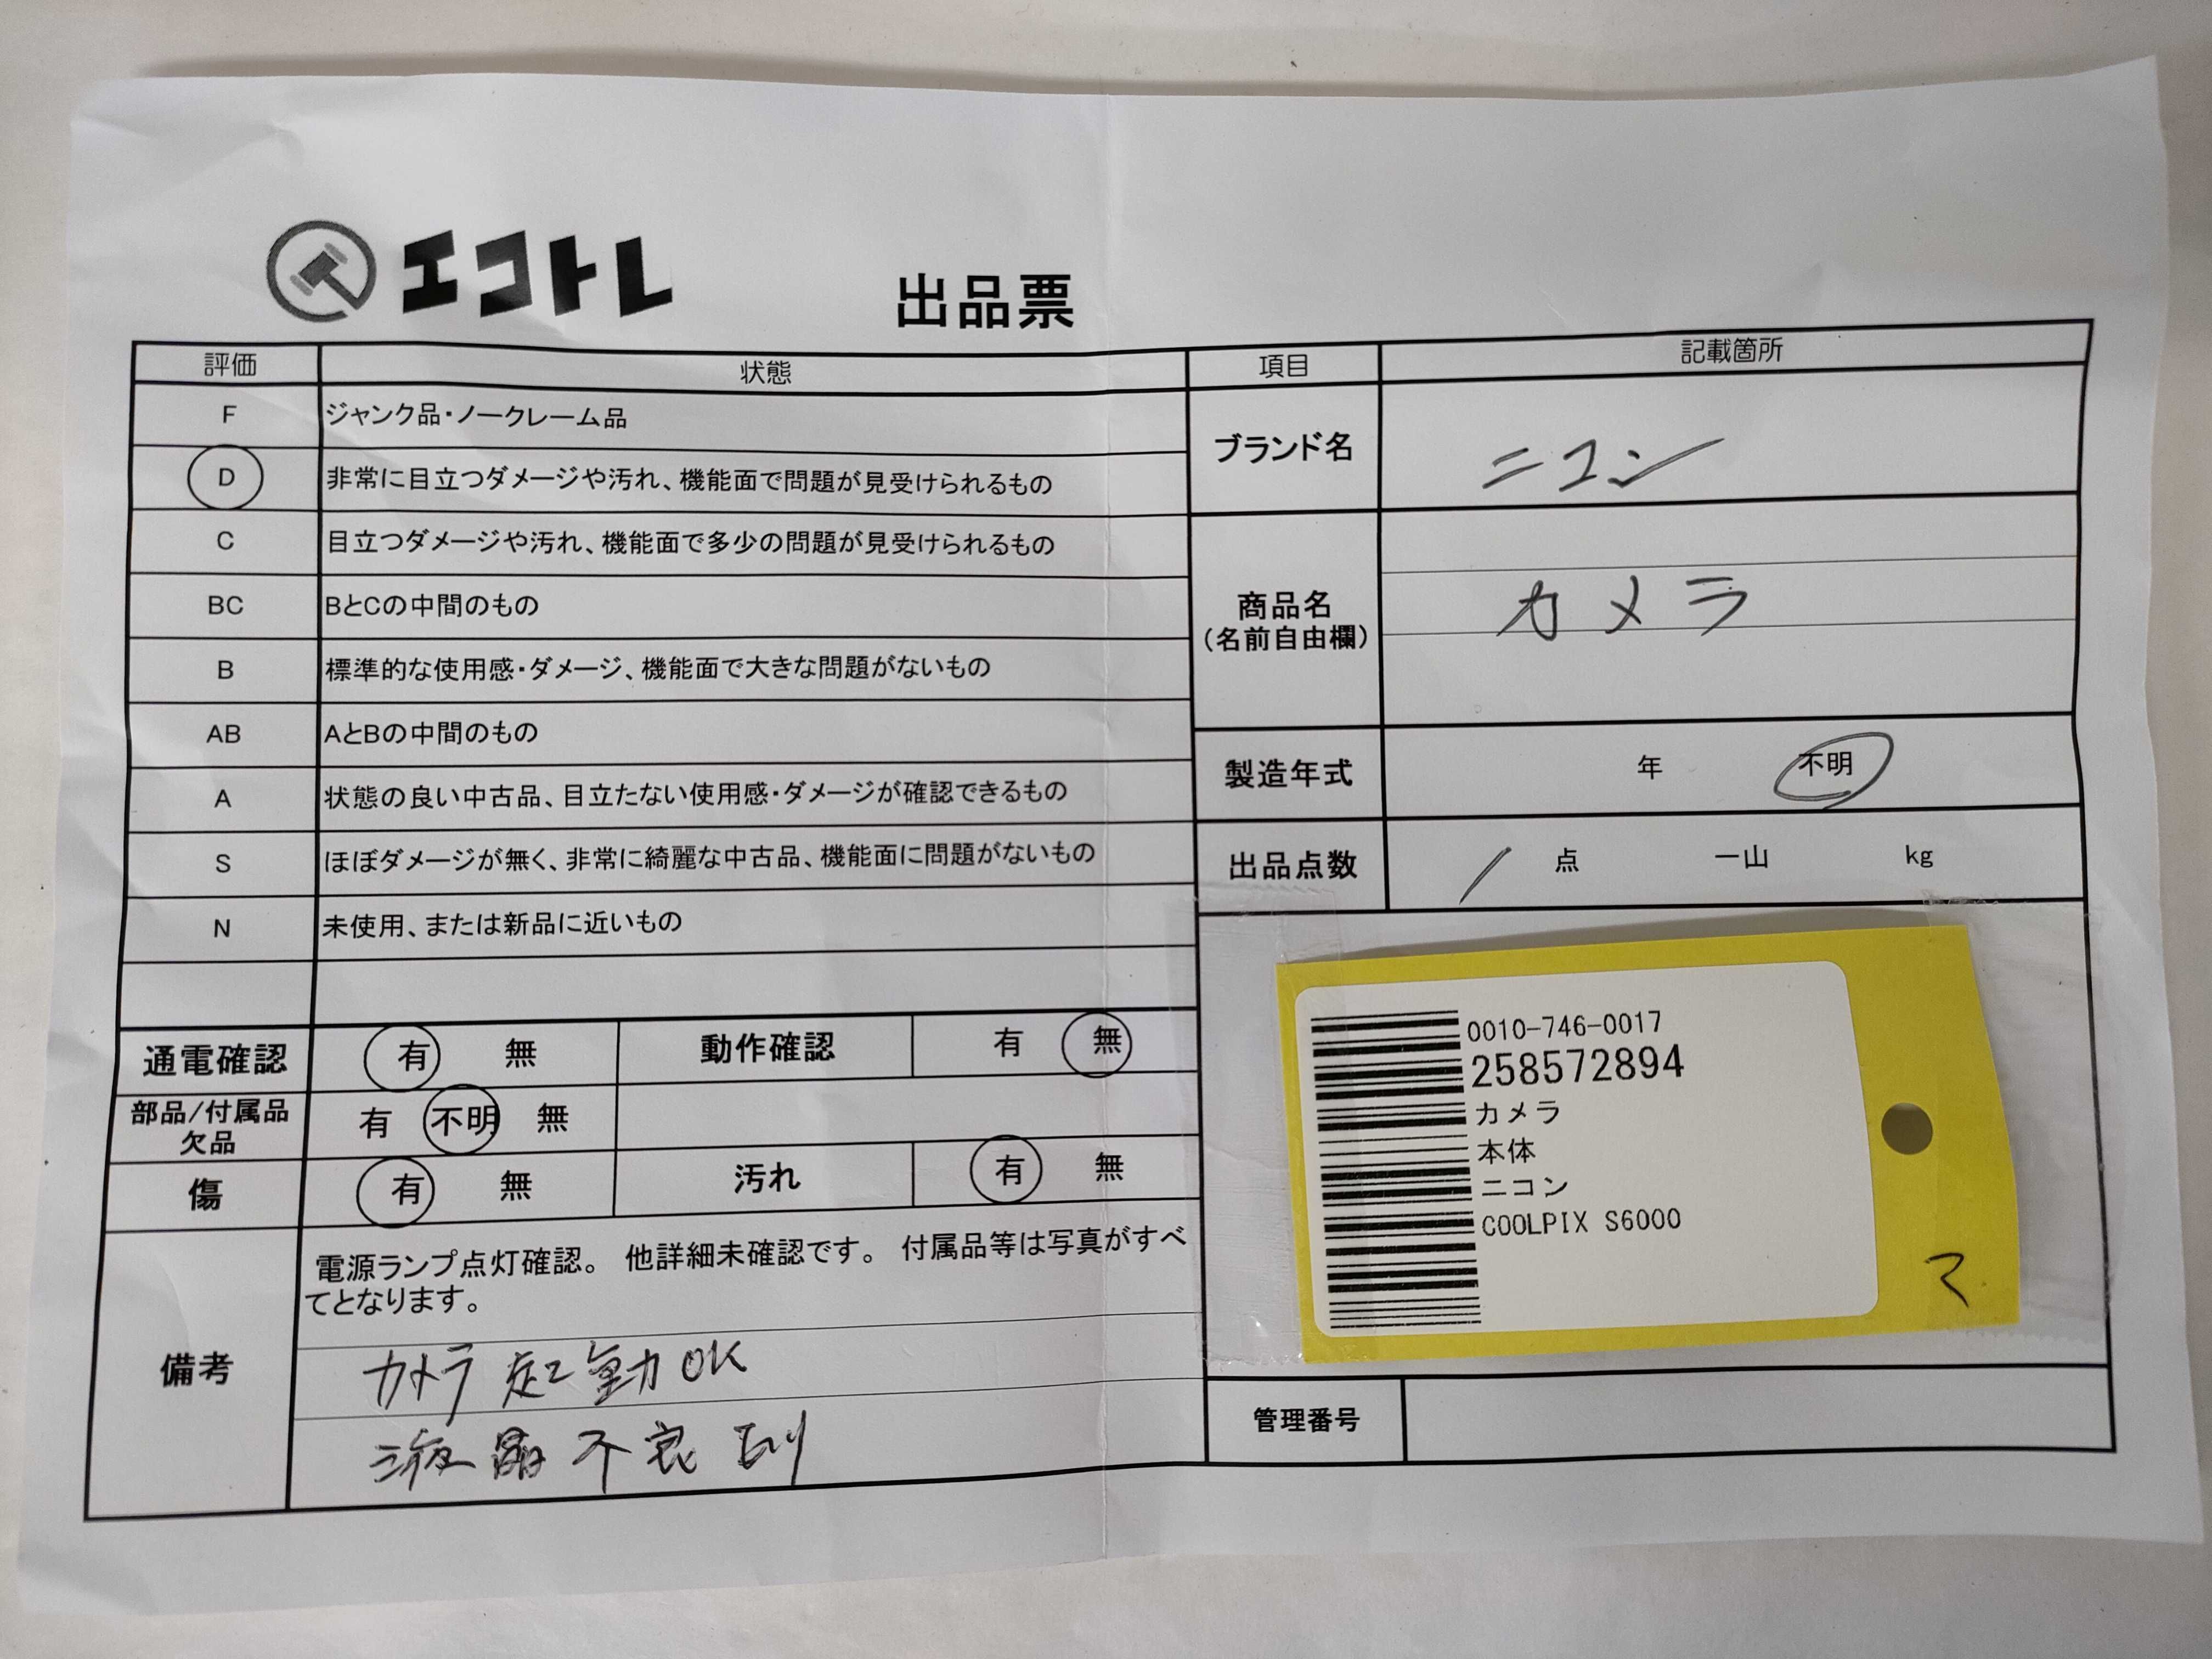 エコトレ
出品票
評価 状態
F ジャンク品・ノークレーム品
D 非常に目立つダメージや汚れ、機能面で問題が見受けられるもの
C 目立つダメージや汚れ、機能面で多少の問題が見受けられるもの
BC BとCの中間のもの
B 標準的な使用感・ダメージ、機能面で大きな問題がないもの
AB AとBの中間のもの
A 状態の良い中古品、目立たない使用感・ダメージが確認できるもの
S ほぼダメージが無く、非常に綺麗な中古品、機能面に問題がないもの
N 未使用、または新品に近いもの
通電確認 有 無 動作確認 有 無
部品/付属品
欠品 有 不明 無
傷 有 無 汚れ 有 無
備考
電源ランプ点灯確認。 他詳細未確認です。 付属品等は写真がすべ
てとなります。
カメラ 起動OK
液晶不良
項目 記載箇所
ブランド名 ニコン
商品名
(名前自由欄)
カメラ
製造年式 年 不明
出品点数 1 点 一山 kg
0010-746-0017
258572894
カメラ
本体
ニコン
COOLPIX S6000
マ
管理番号